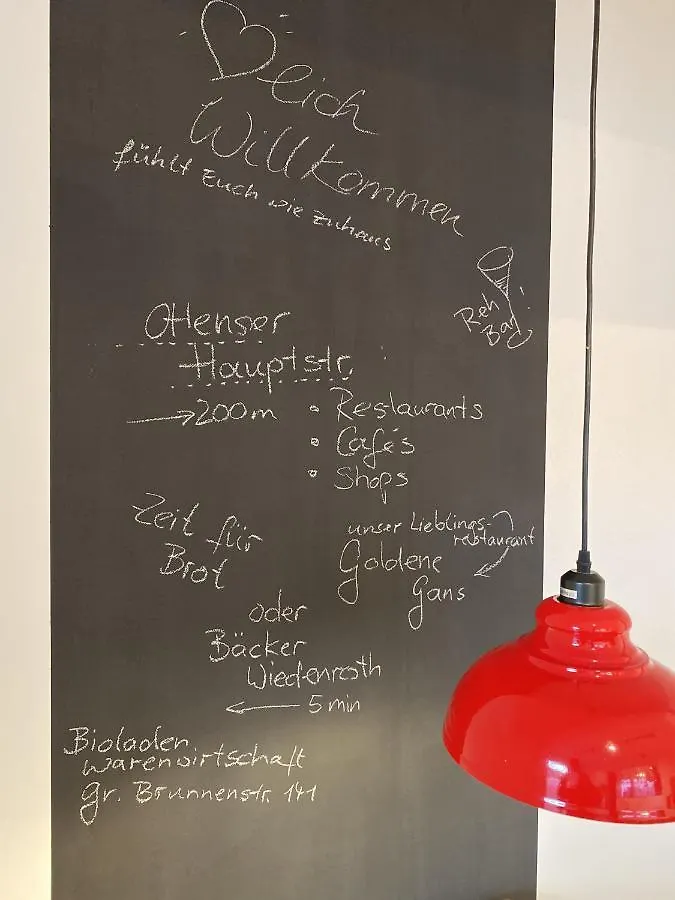 lich
Willkommen
fühlt Euch wie zuhaus
Reh
Bar
Ottenser
Hauptstr.
200m
Restaurants
Cafés
Shops
Zeit für
Brot
unser Lieblings-
restaurant
Goldene
Gans
oder
Bäcker
Wiedenroth
5 min
Bioladen
warenwirtschaft
gr. Brunnenstr. 141